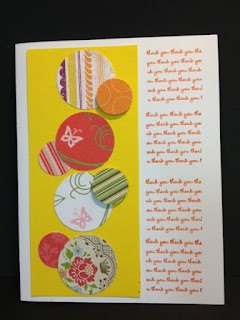 thank you thank you tha
you thank you thank yo
nk you thank you thank
ou thank you thank you
thank you thank you than
u thank you thank you !
thank you thank you tha
you thank you thank yo
nk you thank you thank
ou thank you thank you
thank you thank you than
u thank you thank you !
thank you thank you tha
you thank you thank yo
nk you thank you thank
ou thank you thank you
thank you thank you than
u thank you thank you !
thank you thank you tha
you thank you thank yo
nk you thank you thank
ou thank you thank you
thank you thank you than
u thank you thank you !